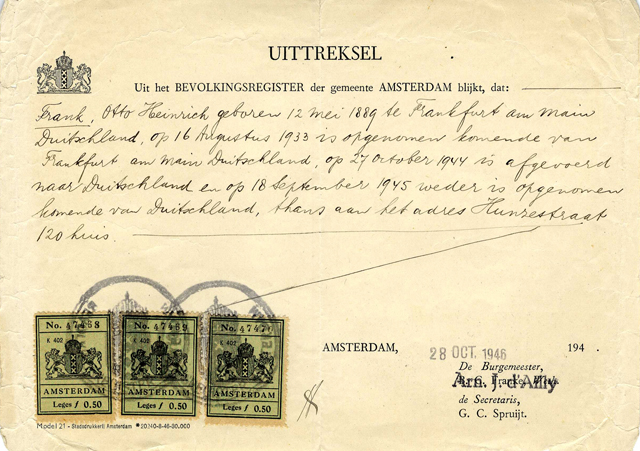 UITTREKSEL
Uit het BEVOLKINGSREGISTER der gemeente AMSTERDAM blijkt, dat:
Frank, Otto Heinrich geboren 12 mei 1889 te Frankfurt am Main
Duitschland, op 16 Augustus 1933 is opgenomen komende van
Frankfurt am Main Duitschland, op 27 October 1944 is afgevoerd
naar Duitschland en op 18 September 1945 weder is opgenomen
komende van Duitschland, thans aan het adres Hunzestraat
120 huis.
No. 47468
K 402
AMSTERDAM
Leges f 0.50
No. 47469
K 402
AMSTERDAM
Leges f 0.50
No. 47470
K 402
AMSTERDAM
Leges f 0.50
AMSTERDAM, 28 OCT. 1946 194
De Burgemeester,
Arn. J. d'Ailly
de Secretaris,
G. C. Spruijt.
Model 21 - Stadsdrukkerij Amsterdam